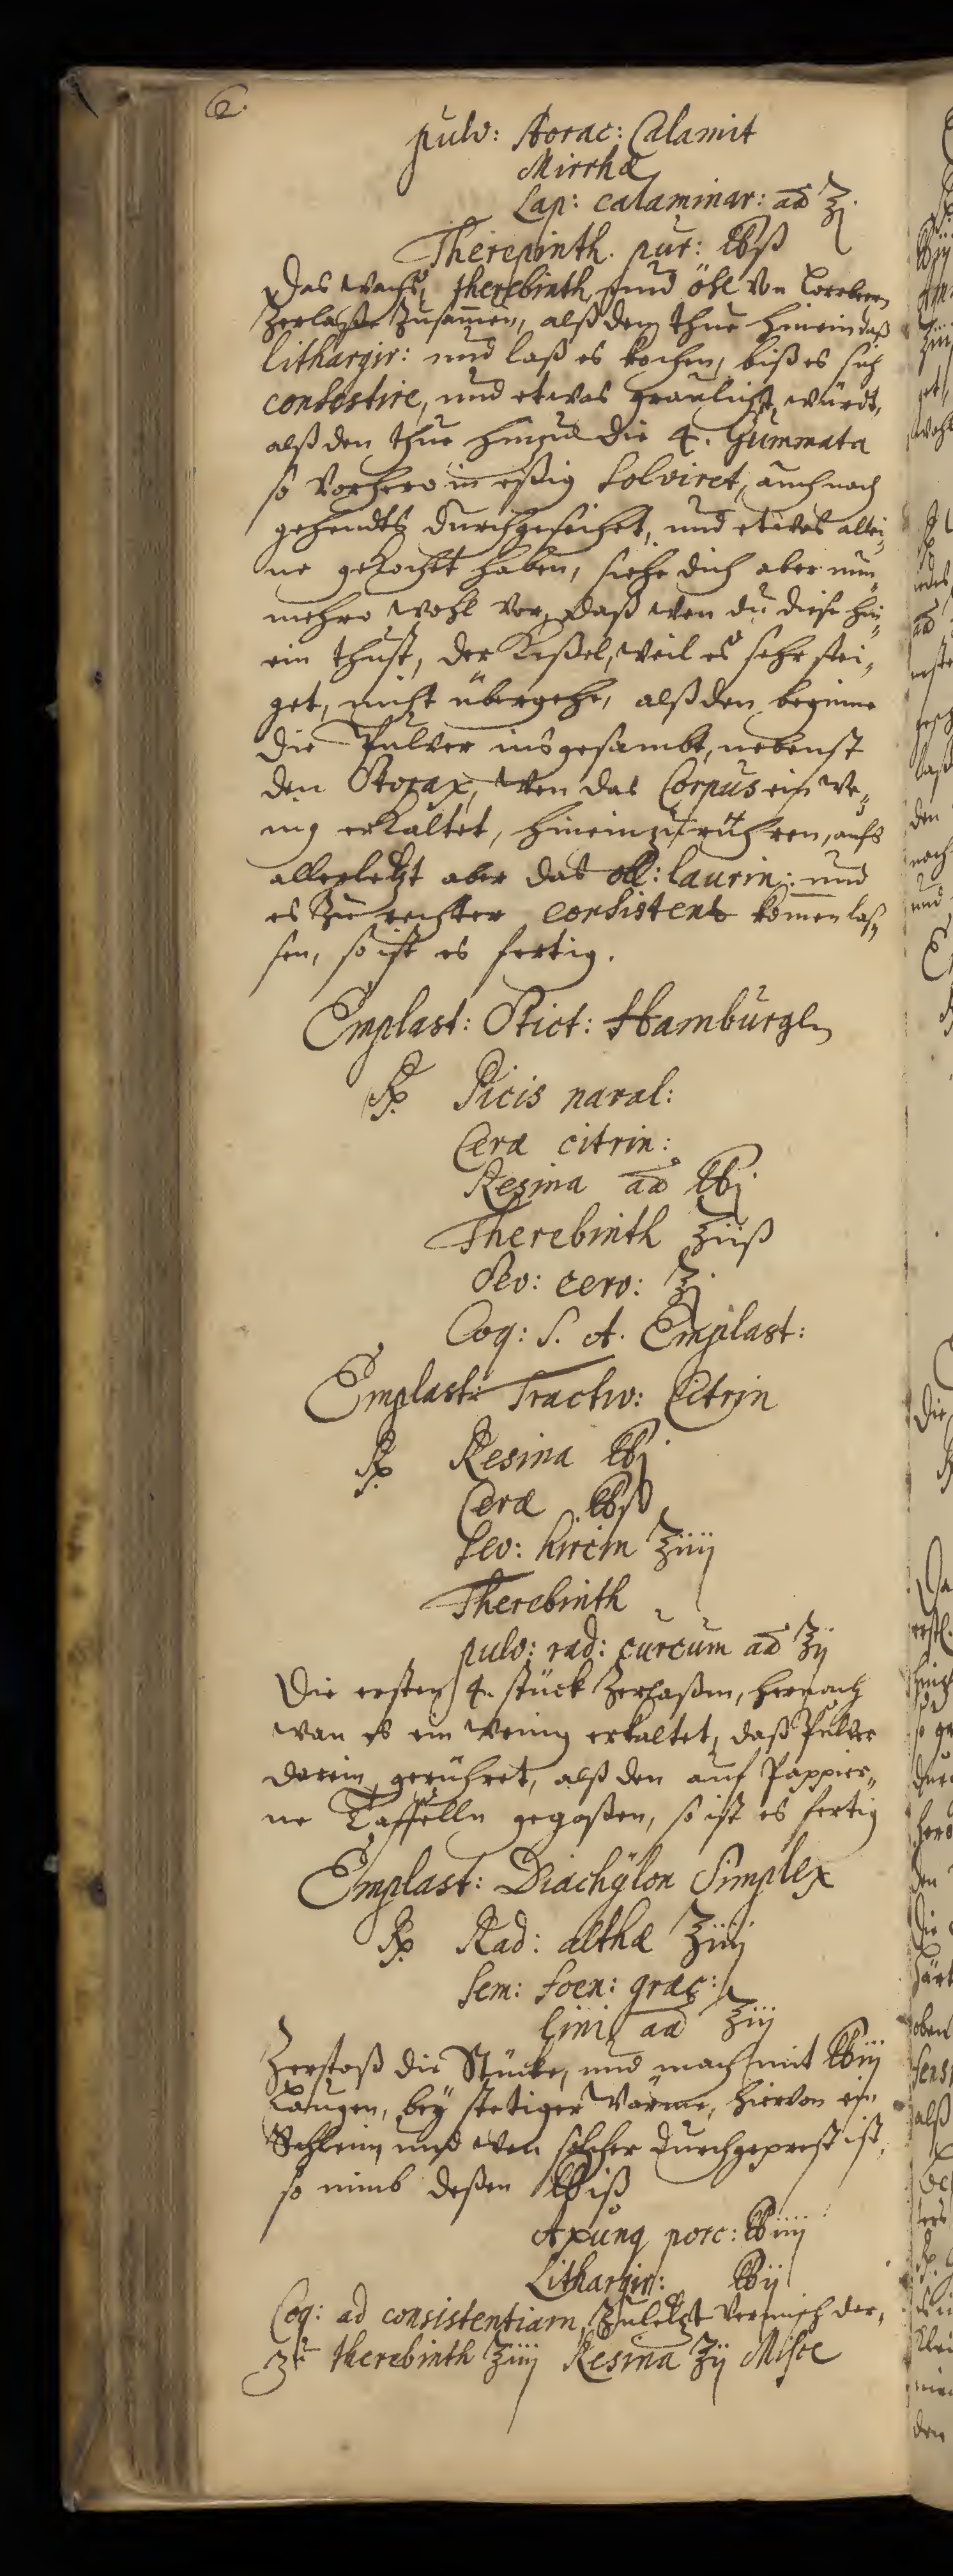 2.
pulv: Storac: Calamit
Mirrhæ
Lap: calaminar: aã ʒj
Therepinth. pur: ℔ß
Das wachs, therebinth, und öhl von Lorbern
zerlaße zusam̅en, alß den thue hinein daß
lithargir: und laß es kochen, biß es sich
consistire, und etwas graulicht würdt,
alß den thue hinzu die 4. Gummata
so vorhero in eßig solviret, auch nach
gehendts durchgeseihet, und etwas allei„
ne gekocht haben, siehe dich aber nun„
mehro wohl vor, daß wen du diese hin„
ein thust, der Keßel, weil es sehr stei„
get, nicht übergehe, alß den beginne
die Pulver ins gesambt, nebenst
den Storax, wen das Corpus ein we„
nig erkaltet, hinein zu rühren, aufs
allerletzt aber das oll: laurin: und
es zu rechter consistens kom̅en laß„
sen, so ist es fertig.
Emplast: Stict: Hamburgl
℞ Picis naval:
Ceræ citrin:
Resina aã ℔j
Therebinth ʒiiß
Sev: cerv: ʒj
Coq: S. A. Emplast:
Emplast: Tractiv: Citrin
℞ Resina ℔j
Ceræ ℔ß
Sev: hircin ʒiiij
Therebinth
pulv: rad: curcum aã ʒij
Die ersten 4. stück zerlaßen, hernach
wan es ein wenig erkaltet, daß Pulver
darein gerühret, alß den auf Pappier„
ne Taffelln gegoßen, so ist es fertig
Emplast: Diachÿlon Simplex
℞ Rad: althæ ʒiiij
Sem: foen: græc:
lini aã ʒiij
Zerstoß die Stücke, und mach mit ℔iij
Laugen, beÿ stetiger Wärme, hiervon ein
Schleim, wen solcher durchgeprest ist,
so nimb deßen ℔iß
Axung porc: ℔iiij
Lithargir: ℔ij
Coq: ad consistentiam, zuletzt vermisch der„
zu therebinth ʒiiij Resina ʒij Misce